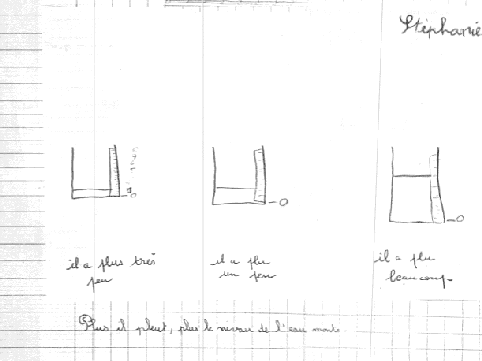 Stéphanie
0
0
0
il a plus très
peu
il a plu
un peu
il a plu
beaucoup.
Plus il pleut, plus le niveau de l'eau monte.